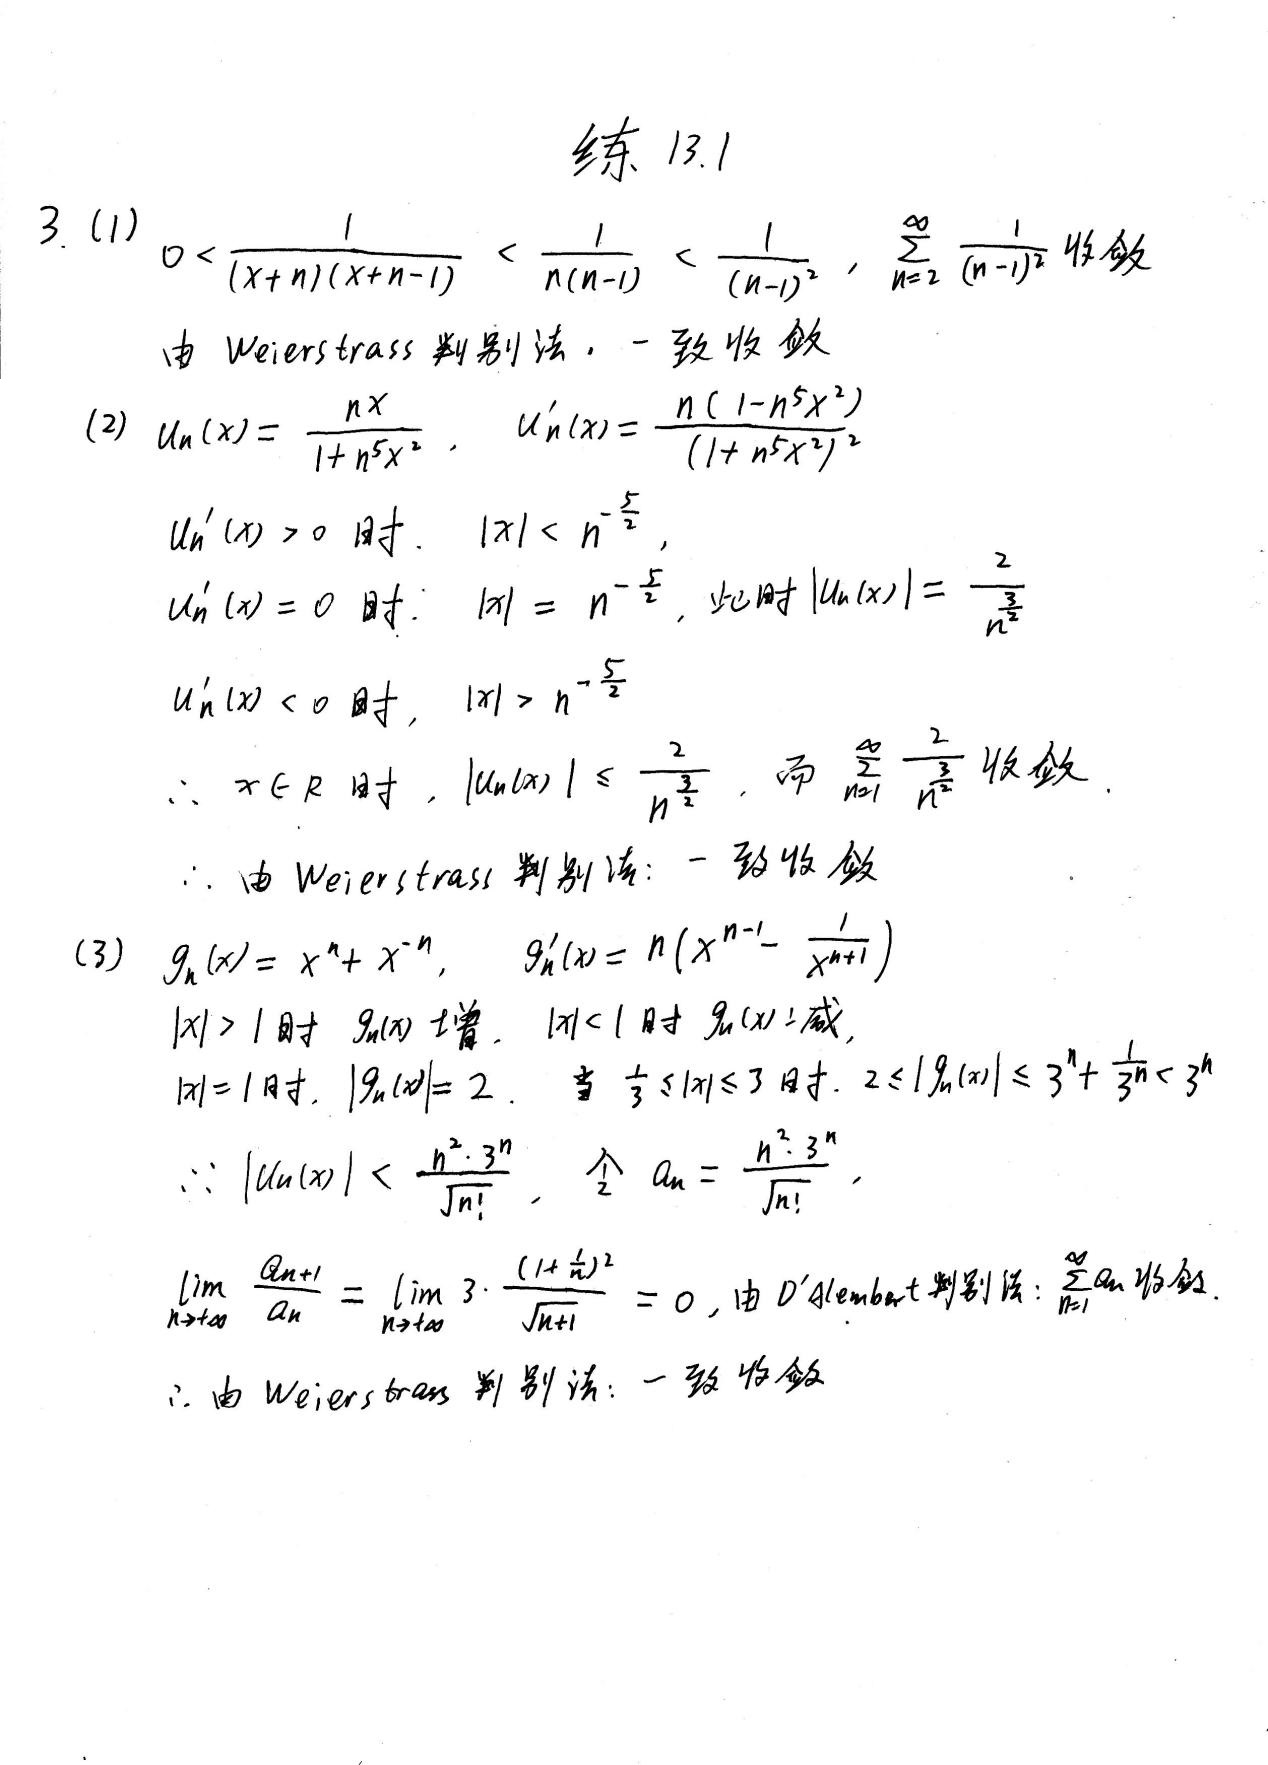 练 13.1
3. (1) 0 < \frac{1}{(x+n)(x+n-1)} < \frac{1}{n(n-1)} < \frac{1}{(n-1)^2} , \sum_{n=2}^{\infty} \frac{1}{(n-1)^2} 收敛
由 Weierstrass 判别法. 一致收敛
(2) u_n(x) = \frac{nx}{1+n^5x^2} , u_n'(x) = \frac{n(1-n^5x^2)}{(1+n^5x^2)^2}
u_n'(x) > 0 时. |x| < n^{-\frac{5}{2}} ,
u_n'(x) = 0 时: |x| = n^{-\frac{5}{2}} , 此时 |u_n(x)| = \frac{2}{n^{\frac{3}{2}}}
u_n'(x) < 0 时, |x| > n^{-\frac{5}{2}}
∴ x ∈ R 时, |u_n(x)| ≤ \frac{2}{n^{\frac{3}{2}}} , 而 \sum_{n=1}^{\infty} \frac{2}{n^{\frac{3}{2}}} 收敛.
∴ 由 Weierstrass 判别法: 一致收敛
(3) g_n(x) = x^n + x^{-n} , g_n'(x) = n(x^{n-1} - \frac{1}{x^{n+1}})
|x| > 1 时 g_n(x) 增. |x| < 1 时 g_n(x) 减,
|x| = 1 时. |g_n(x)| = 2 . 当 \frac{1}{3} ≤ |x| ≤ 3 时. 2 ≤ |g_n(x)| ≤ 3^n + \frac{1}{3^n} < 3^n
∴ |u_n(x)| < \frac{n^2·3^n}{\sqrt{n!}} , 令 a_n = \frac{n^2·3^n}{\sqrt{n!}} ,
\lim_{n→+∞} \frac{a_{n+1}}{a_n} = \lim_{n→+∞} 3·\frac{(1+\frac{1}{n})^2}{\sqrt{n+1}} = 0 , 由 D'Alembert 判别法: \sum_{n=1}^{\infty} a_n 收敛.
∴ 由 Weierstrass 判别法: 一致收敛